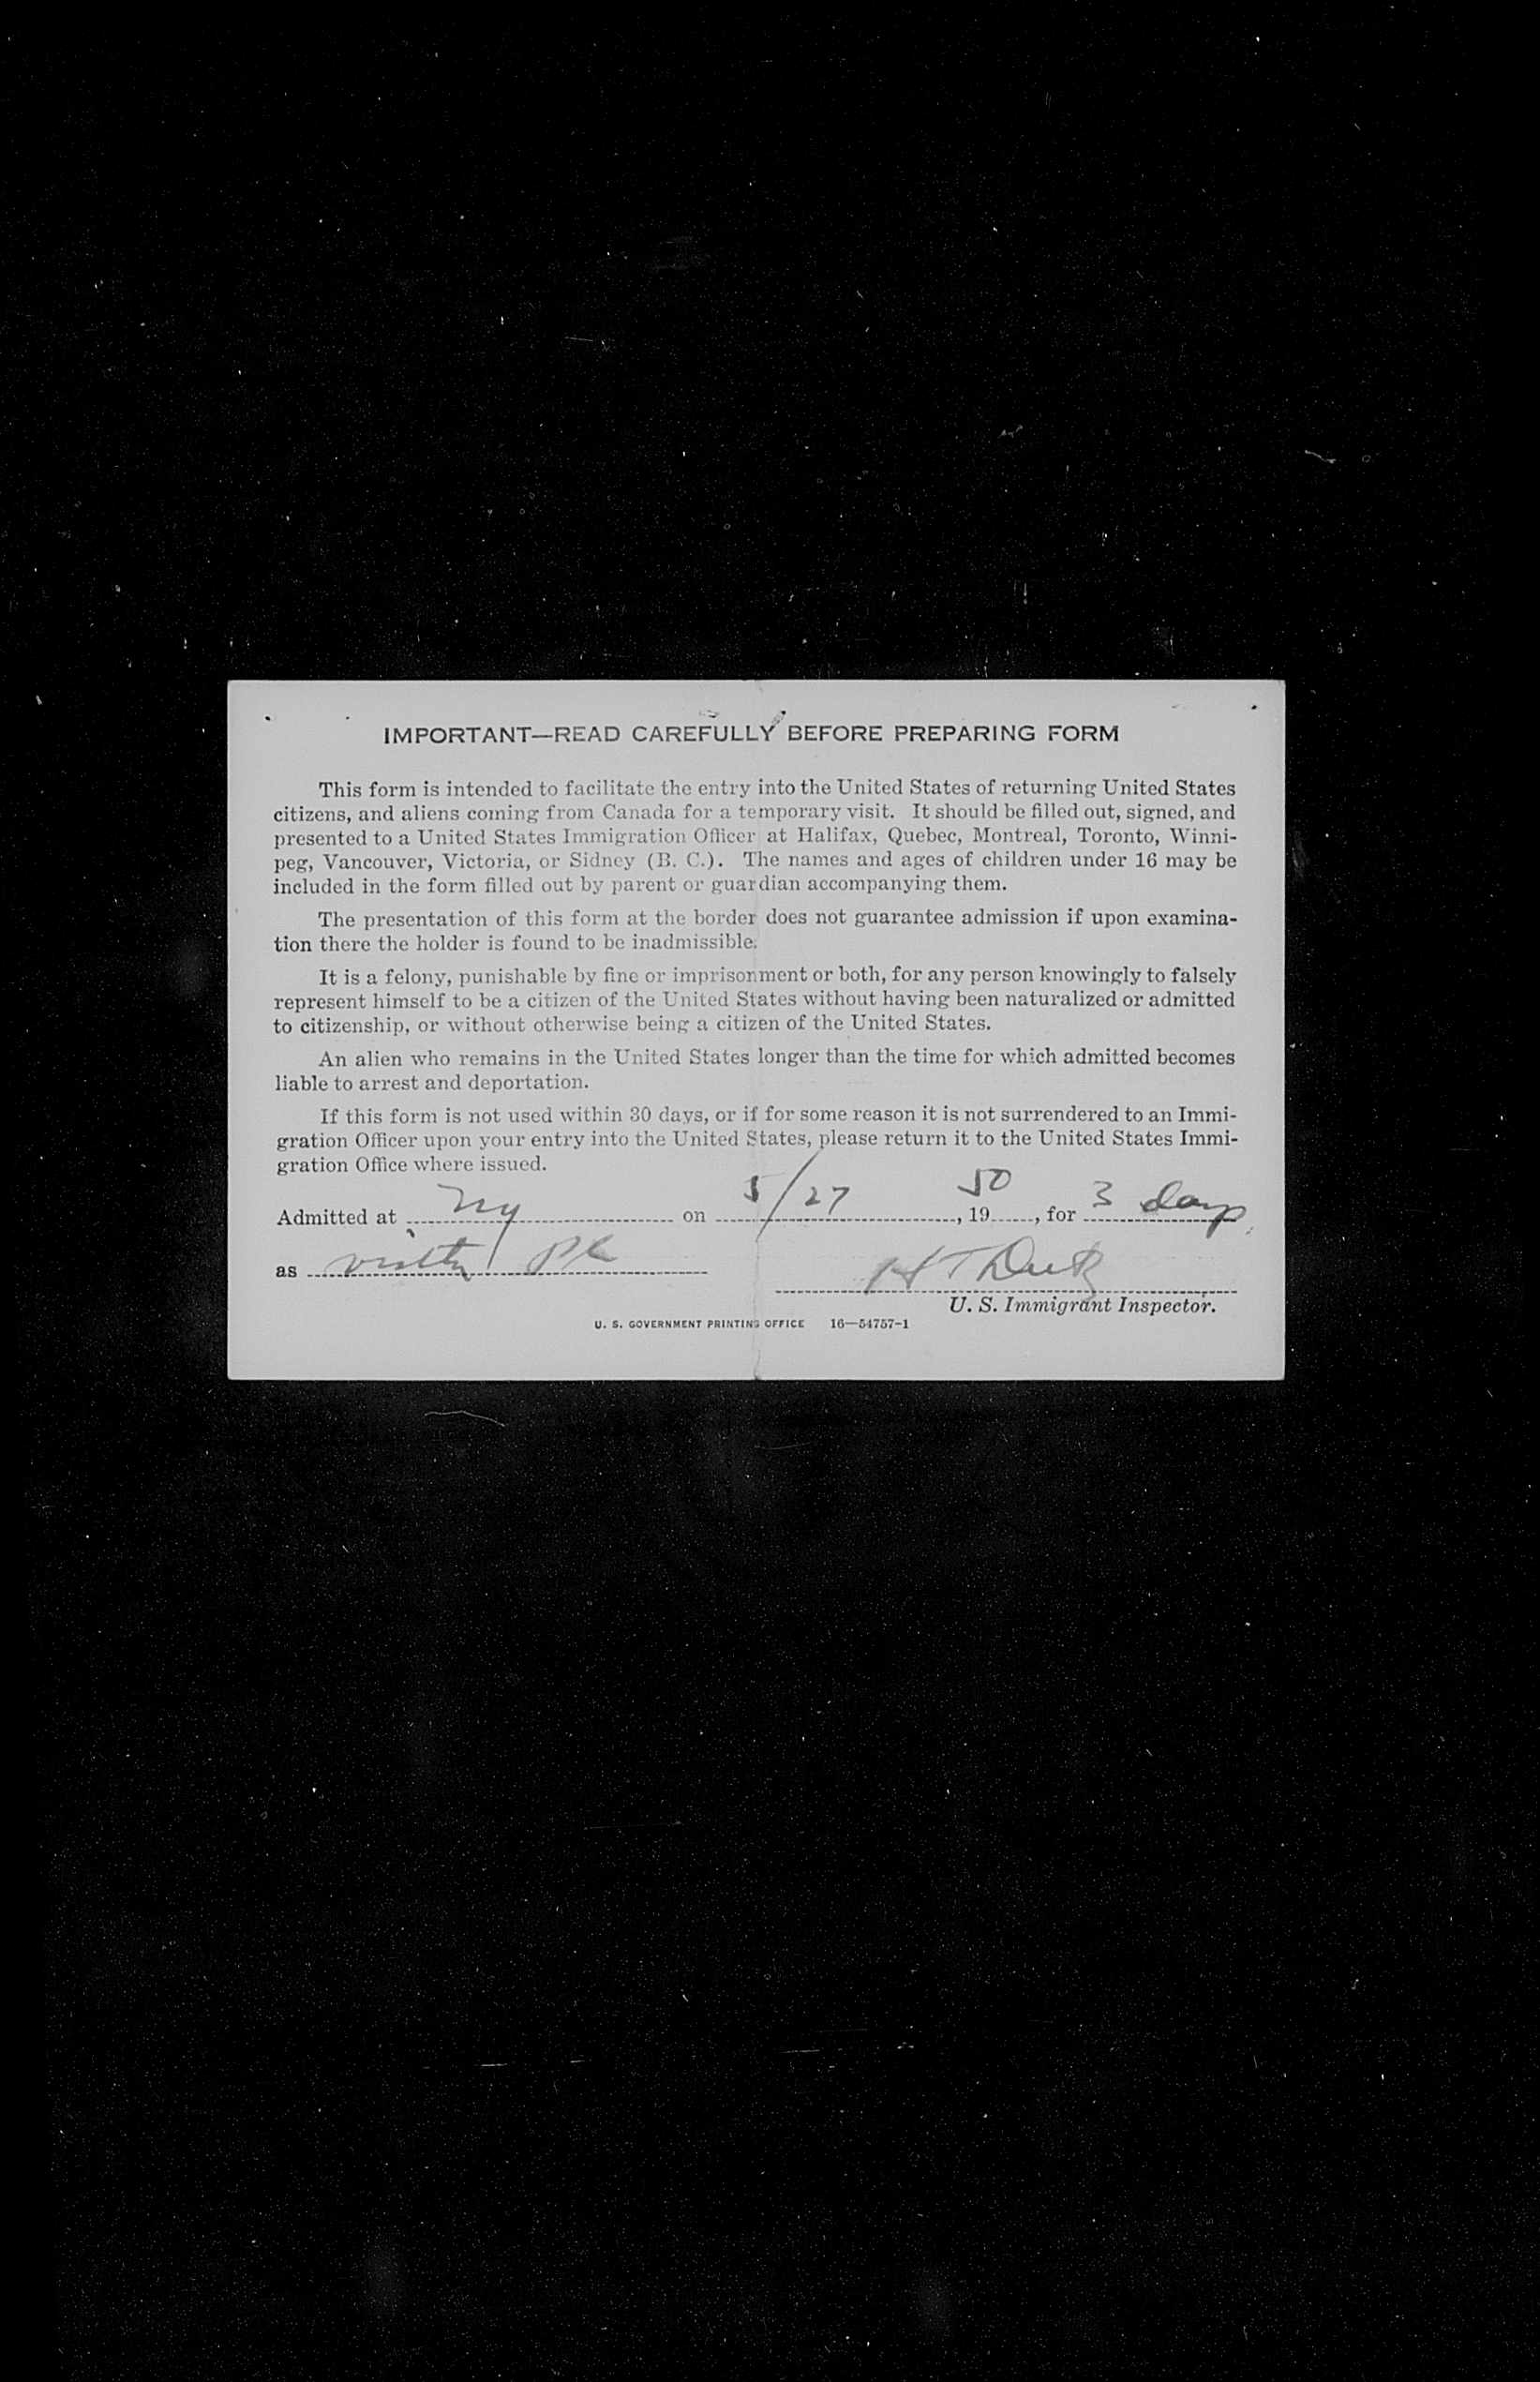 IMPORTANT—READ CAREFULLY BEFORE PREPARING FORM
This form is intended to facilitate the entry into the United States of returning United States
citizens, and aliens coming from Canada for a temporary visit. It should be filled out, signed, and
presented to a United States Immigration Officer at Halifax, Quebec, Montreal, Toronto, Winni-
peg, Vancouver, Victoria, or Sidney (B. C.). The names and ages of children under 16 may be
included in the form filled out by parent or guardian accompanying them.
The presentation of this form at the border does not guarantee admission if upon examina-
tion there the holder is found to be inadmissible.
It is a felony, punishable by fine or imprisonment or both, for any person knowingly to falsely
represent himself to be a citizen of the United States without having been naturalized or admitted
to citizenship, or without otherwise being a citizen of the United States.
An alien who remains in the United States longer than the time for which admitted becomes
liable to arrest and deportation.
If this form is not used within 30 days, or if for some reason it is not surrendered to an Immi-
gration Officer upon your entry into the United States, please return it to the United States Immi-
gration Office where issued.
Admitted at NY on 5/27, 1950, for 3 days
as
U. S. Immigrant Inspector.
U. S. GOVERNMENT PRINTING OFFICE 16—54757-1